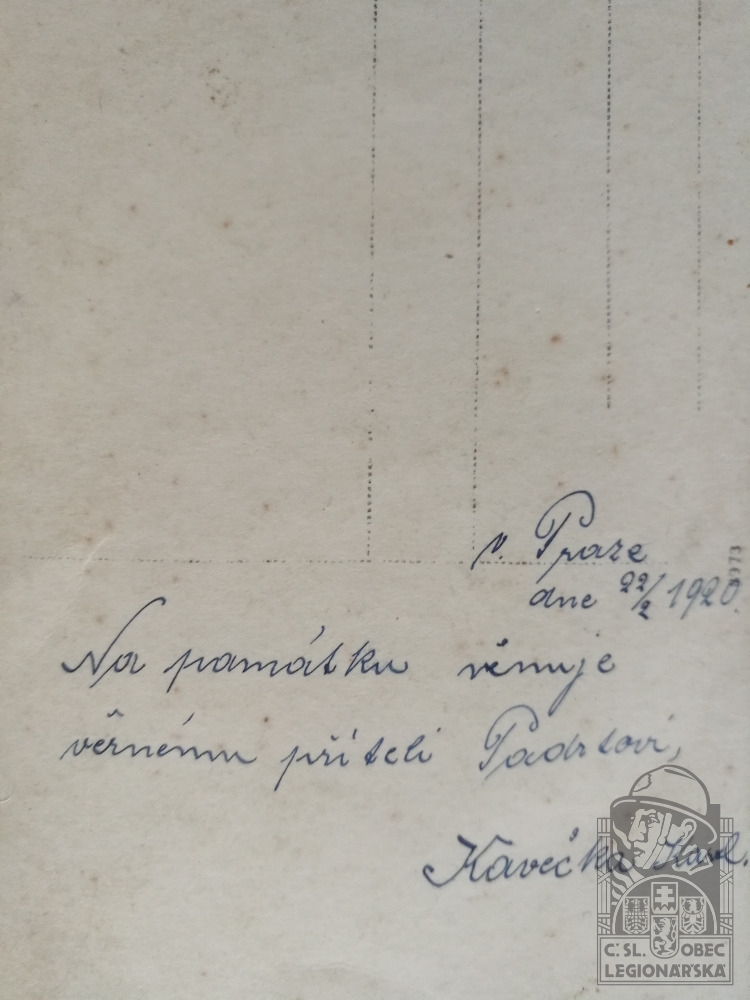 v. Praze
dne 22/2 1920.
Na památku věnuje
věrnému příteli Padrtovi,
Kavečka Karel.
C.SL. OBEC
LEGIONÁRSKÁ